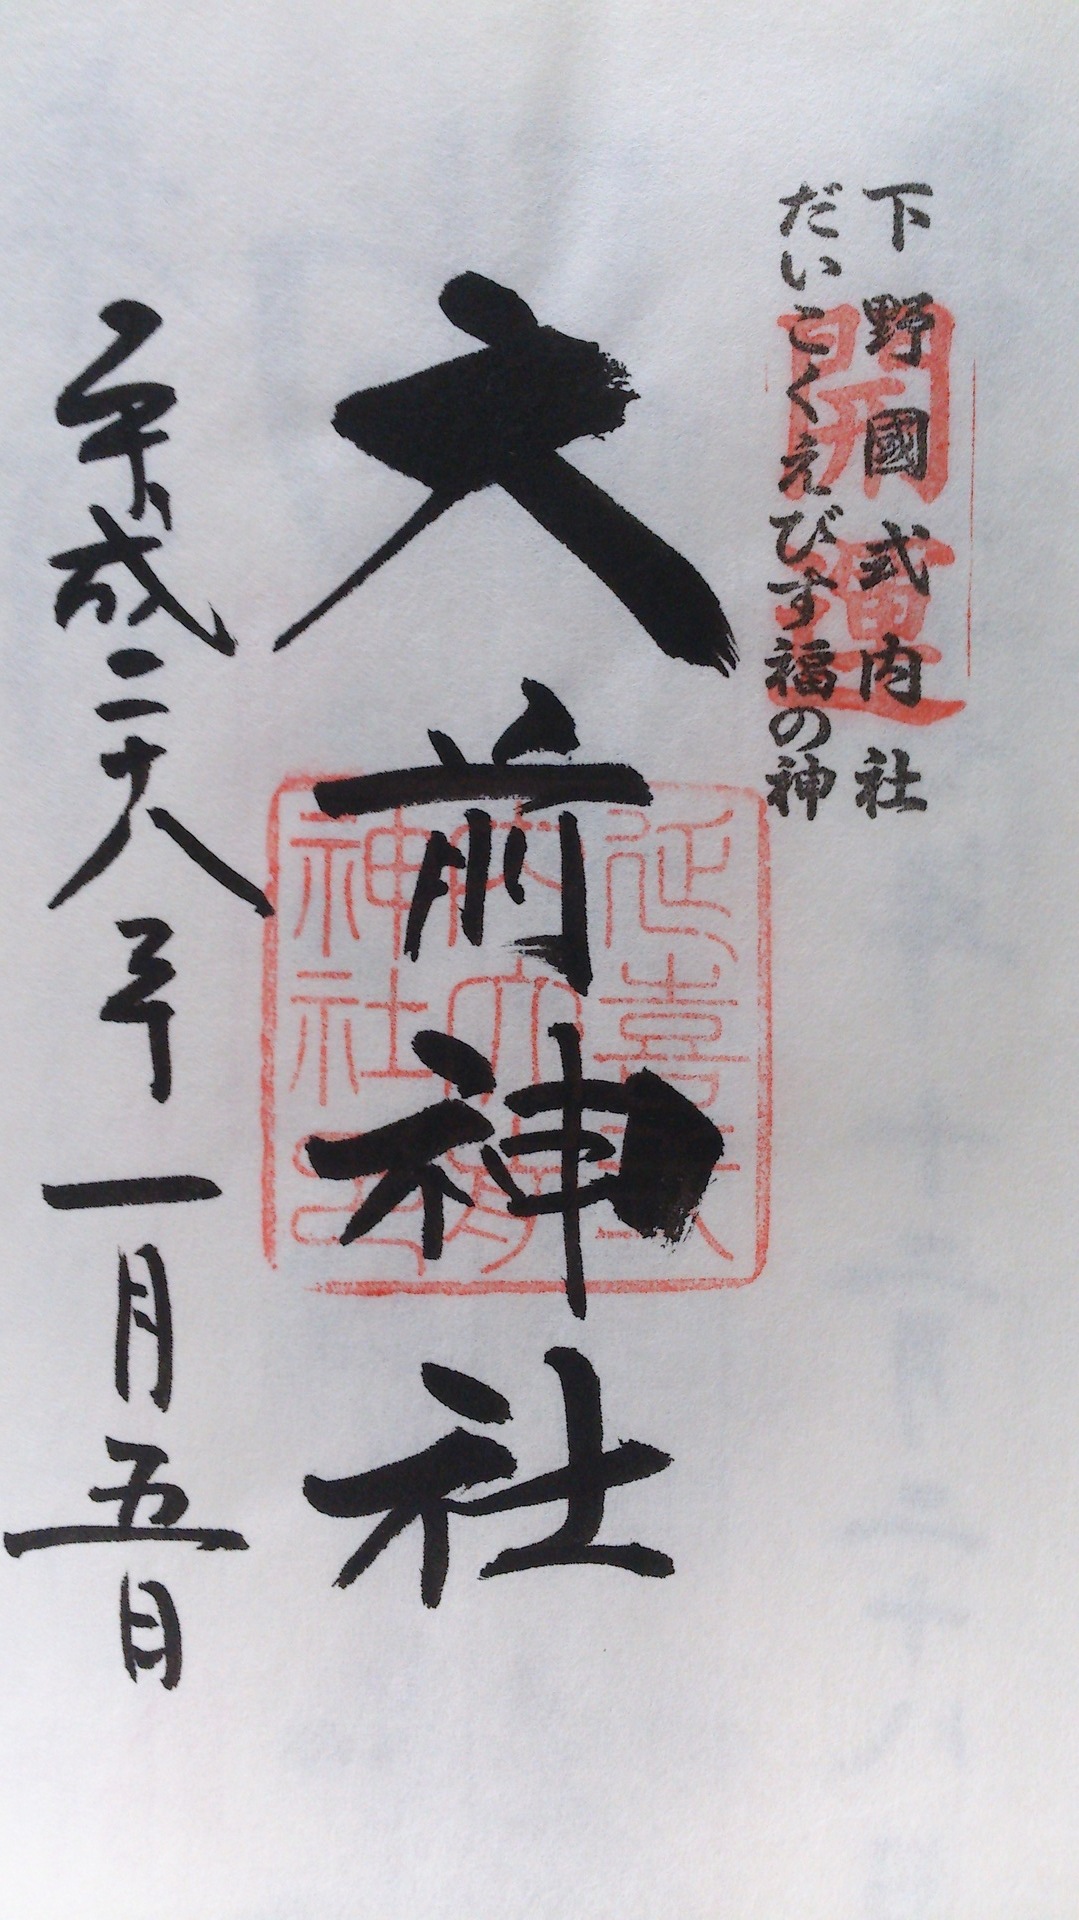 下野國式内社
だいこくえびす福の神
開運
大前神社
延喜式
内大前
神社印
平成二十八年一月五日